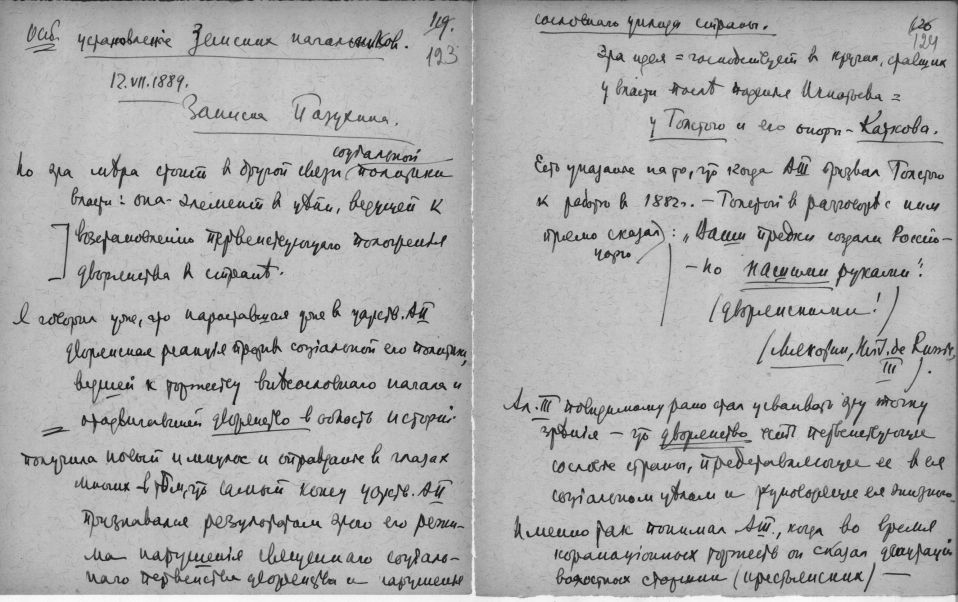 119.
123
Осб. установленіе Земских начальников.
12.VII.1889.
Записка Пазухина.
социальной
Но эта мѣра стоит в другой связи политики
власти: она - элемент в цѣпи, ведущей к
возстановленію первенствующаго положенія
дворянства в странѣ.
Я говорил уже, что нараставшая уже в царств. АII
дворянская реакція против соціальной его политики,
ведшей к торжеству внѣсословнаго начала и
отодвигавшей дворянство в область исторіи
получила новый импульс и оправданіе в глазах
многих - в том, что самый конец царств. АII
признавался результатом этого его режи-
ма нарушенія священнаго соціаль-
наго первенства дворянства и нарушенія
126
124
сословнаго уклада страны.
Эта идея = господствует в кругах, ставших
у власти послѣ паденія Игнатьева =
у Толстого и его опоры - Каткова.
Есть указаніе на то, что когда АIII призвал Толстого
к работѣ в 1882 г. - Толстой в разговорѣ с ним
прямо сказал : „Ваши предки создали Россію -
царю
- но нашими руками".
(дворянскими!)
(Милюков, Hist. de Russie,
III).
Ал. III повидимому рано стал усваивать эту точку
зрѣнія - что дворянство есть первенствующее
сословіе страны, представляющее ее в ея
соціальном цѣлом и руководящее ея жизнью.
Именно так понимал АIII, когда во время
коронаціонных торжеств он сказал депутаціи
волостных старшин (крестьянских) —